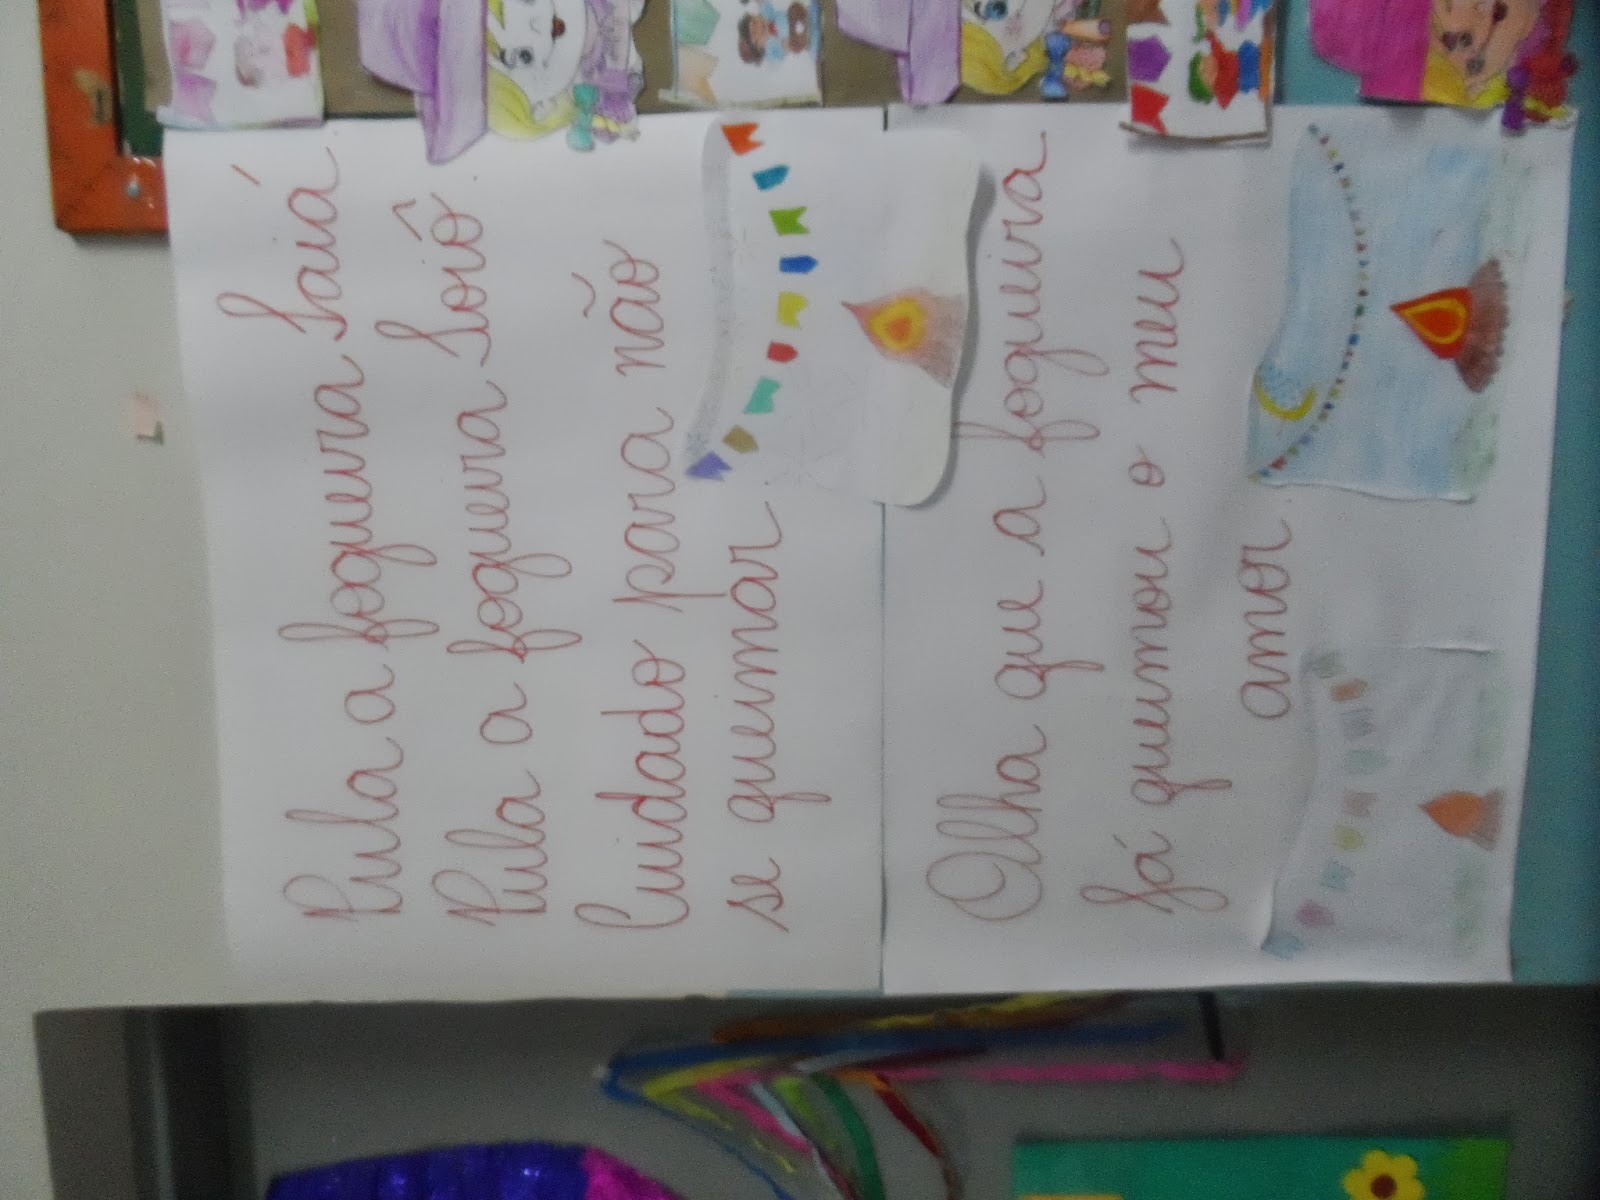 Pula a fogueira Iaiá
Pula a fogueira Ioiô
Cuidado para não
se queimar
Olha que a fogueira
já queimou o meu
amor